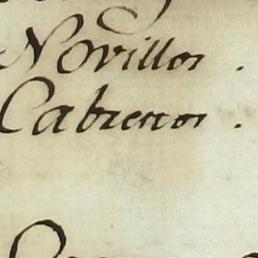 Novillos .
Cabrestos .